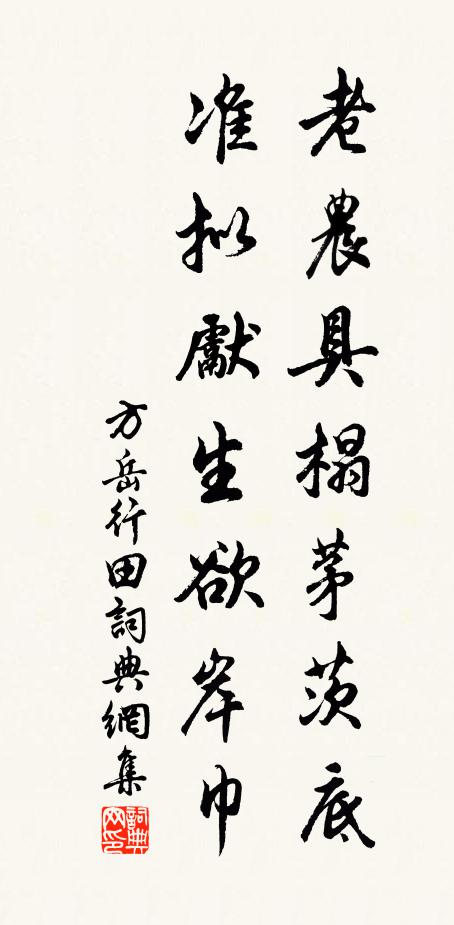 老農具榻茅茨底
准擬獻生欲岸巾
方岳行田詞典網集
詞典網印